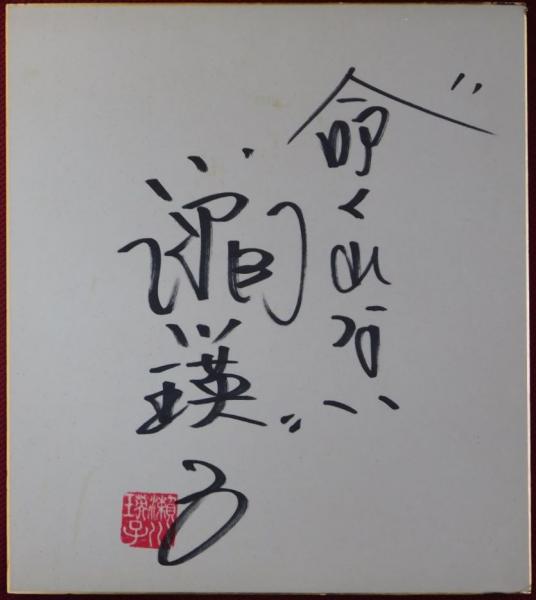 〝命くれない〟
瀬川瑛子
瀬川
瑛子